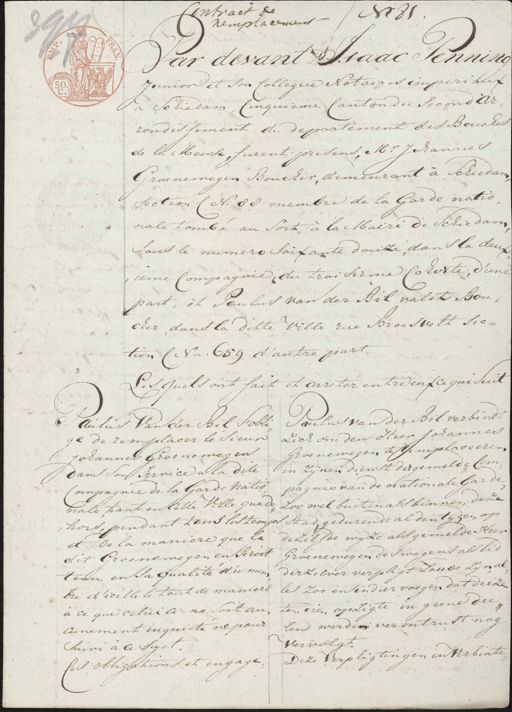 Contract de
remplacement
N° 81.
50
C.
Par devant Isaac Penning
Junior et son Collegue Notaires imperiaux
a Schiedam Cinquieme Canton du Second ar
rondissement du departement des Bouches
de la Meuse, furent presens, Mr. Johannes
Groenewegen Boucher, demeurant à Schiedam,
Section C No. 88 membre de la Garde natio
nale tombé au Sort à la Mairie de Schiedam,
sous le numero Soixante douze, dans la deux
ieme Compagnie, du troisieme Cohorte, d'une
part, et Paulus van der Bil valet Bou
cher dans la ditte Ville rue Broersvelt Sec
tion C No. 659 d'autre part.
Lesquels ont fait et arreter entre eux ce qui Suit
Paulus van der Bil Soblige
de remplacer le Sieur
Johannes Groenewegen
dans Son Service a la dite
Compagnie de la Garde natio
nale tant en cette Ville que de
hors, pendant tous les temps
et de la maniere que le
dit Groenewegen en Seroit
tenu en Sa qualité du mem
bre d'icelle le tout de maniere
à ce que celui ci ne Soit au
cunement inquieté ne pour
Suivi à ce Sujet.
Ces obligations et engage
Paulus van der Bil verbindt
zich om den Heer Johannes
Groenewegen te remplaceeren
in zijnen dienst der gemelde Com
pagnie van de nationale Garde
zoo wel buiten als binnen deze
Stad gedurende al den tyd en op
dezelfde wyze als gemelde Heer
Groenewegen die wegens als lid
der zelver verpligt zoude zyn al
les zoo en indier voegen dat deeze
ten dien opzigte in geene dee
len werden verontrust nog
vervolgt.
Deze verpligtingen en verbinte